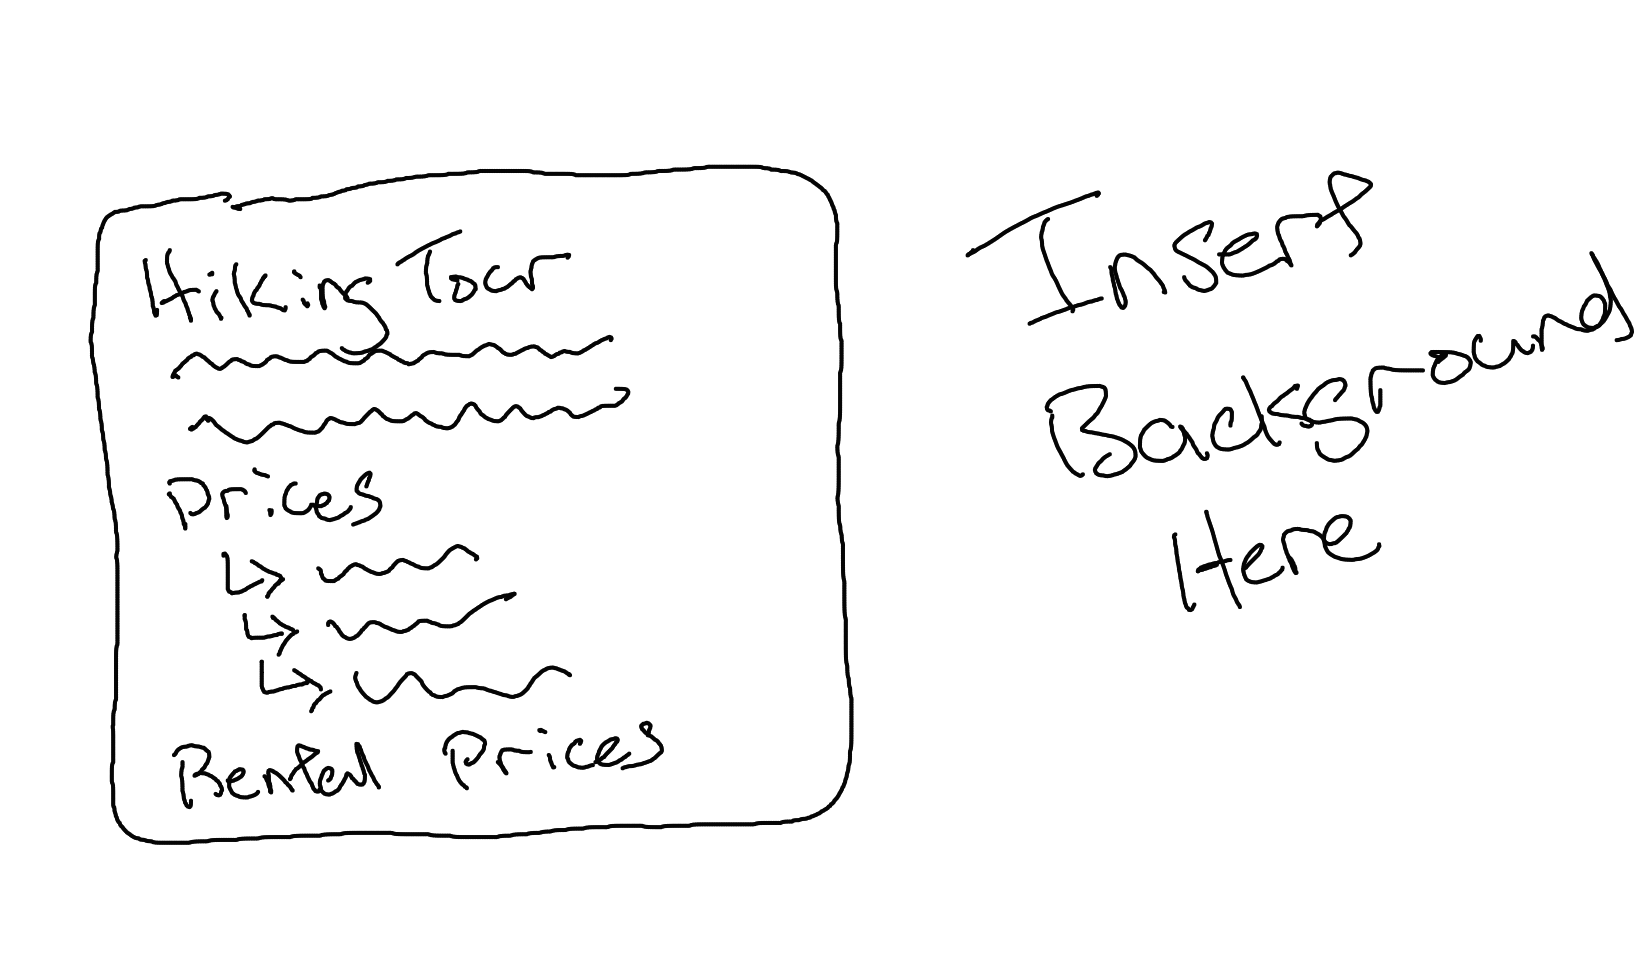 Hiking Tour
Prices
Rental Prices
Insert
Background
Here